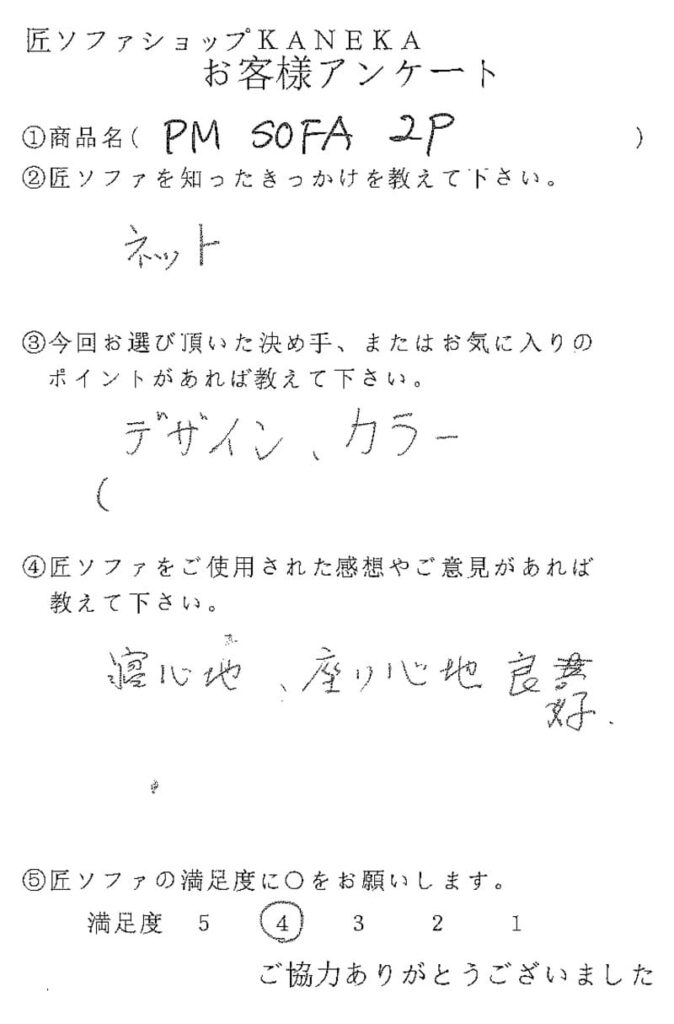 匠ソファショップKANEKA
お客様アンケート
①商品名( PM SOFA 2P )
②匠ソファを知ったきっかけを教えて下さい。
ネット
③今回お選び頂いた決め手、またはお気に入りの
ポイントがあれば教えて下さい。
デザイン、カラー
(
④匠ソファをご使用された感想やご意見があれば
教えて下さい。
寝心地、座り心地良
好.
⑤匠ソファの満足度に○をお願いします。
満足度 5 4 3 2 1
ご協力ありがとうございました